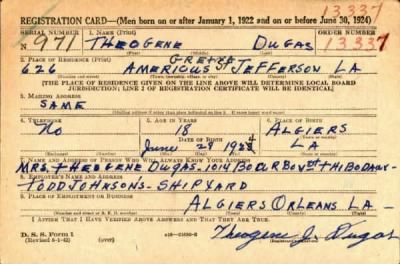 13337
REGISTRATION CARD—(Men born on or after January 1, 1922 and on or before June 30, 1924)
SERIAL NUMBER 1. NAME (Print) ORDER NUMBER
N 971 THEOGENE DUGAS 13337
(First) (Middle) (Last)
2. PLACE OF RESIDENCE (Print) GRETNA
626 AMERICUS ST JEFFERSON LA
(Number and street) (Town, township, village, or city) (County) (State)
[THE PLACE OF RESIDENCE GIVEN ON THE LINE ABOVE WILL DETERMINE LOCAL BOARD
JURISDICTION; LINE 2 OF REGISTRATION CERTIFICATE WILL BE IDENTICAL]
3. MAILING ADDRESS
SAME
(Mailing address if other than place indicated on line 2. If same insert word same)
4. TELEPHONE 5. AGE IN YEARS 6. PLACE OF BIRTH
NO 18 ALGIERS
DATE OF BIRTH (Town or county)
JUNE 28 1924 LA
(Exchange) (Number) (Mo.) (Day) (Yr.) (State or country)
7. NAME AND ADDRESS OF PERSON WHO WILL ALWAYS KNOW YOUR ADDRESS
MRS. THEOGENE DUGAS. 1014 ST THIBODAUX
8. EMPLOYER'S NAME AND ADDRESS
TODD JOHNSON'S - SHIPYARD
9. PLACE OF EMPLOYMENT OR BUSINESS
ALGIERS ORLEANS LA -
(Number and street or R. F. D. number) (Town) (County) (State)
I AFFIRM THAT I HAVE VERIFIED ABOVE ANSWERS AND THAT THEY ARE TRUE.
D. S. S. Form 1
(Revised 6-1-42) (over) Theogene J. Dugas